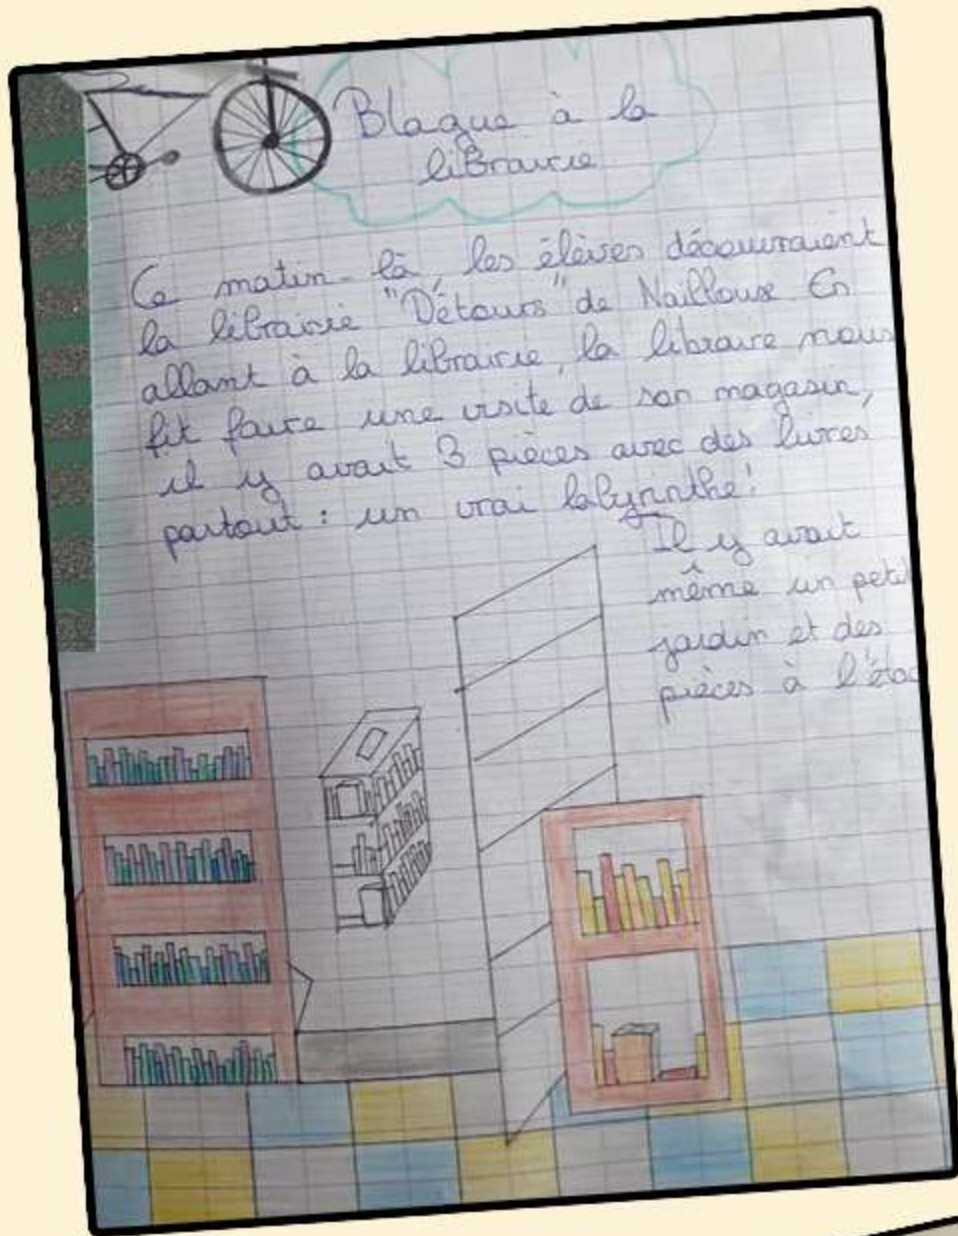 Blague à la
librairie
Ce matin-là, les élèves découvraient
la librairie "Détours" de Nailloux. En
allant à la librairie, la libraire nous
fit faire une visite de son magasin,
il y avait 3 pièces avec des livres
partout : un vrai labyrinthe !
Il y avait
même un petit
jardin et des
pièces à l'étag